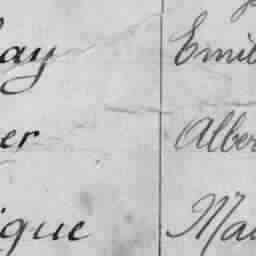 ay Emil
er Alber
ique Mau